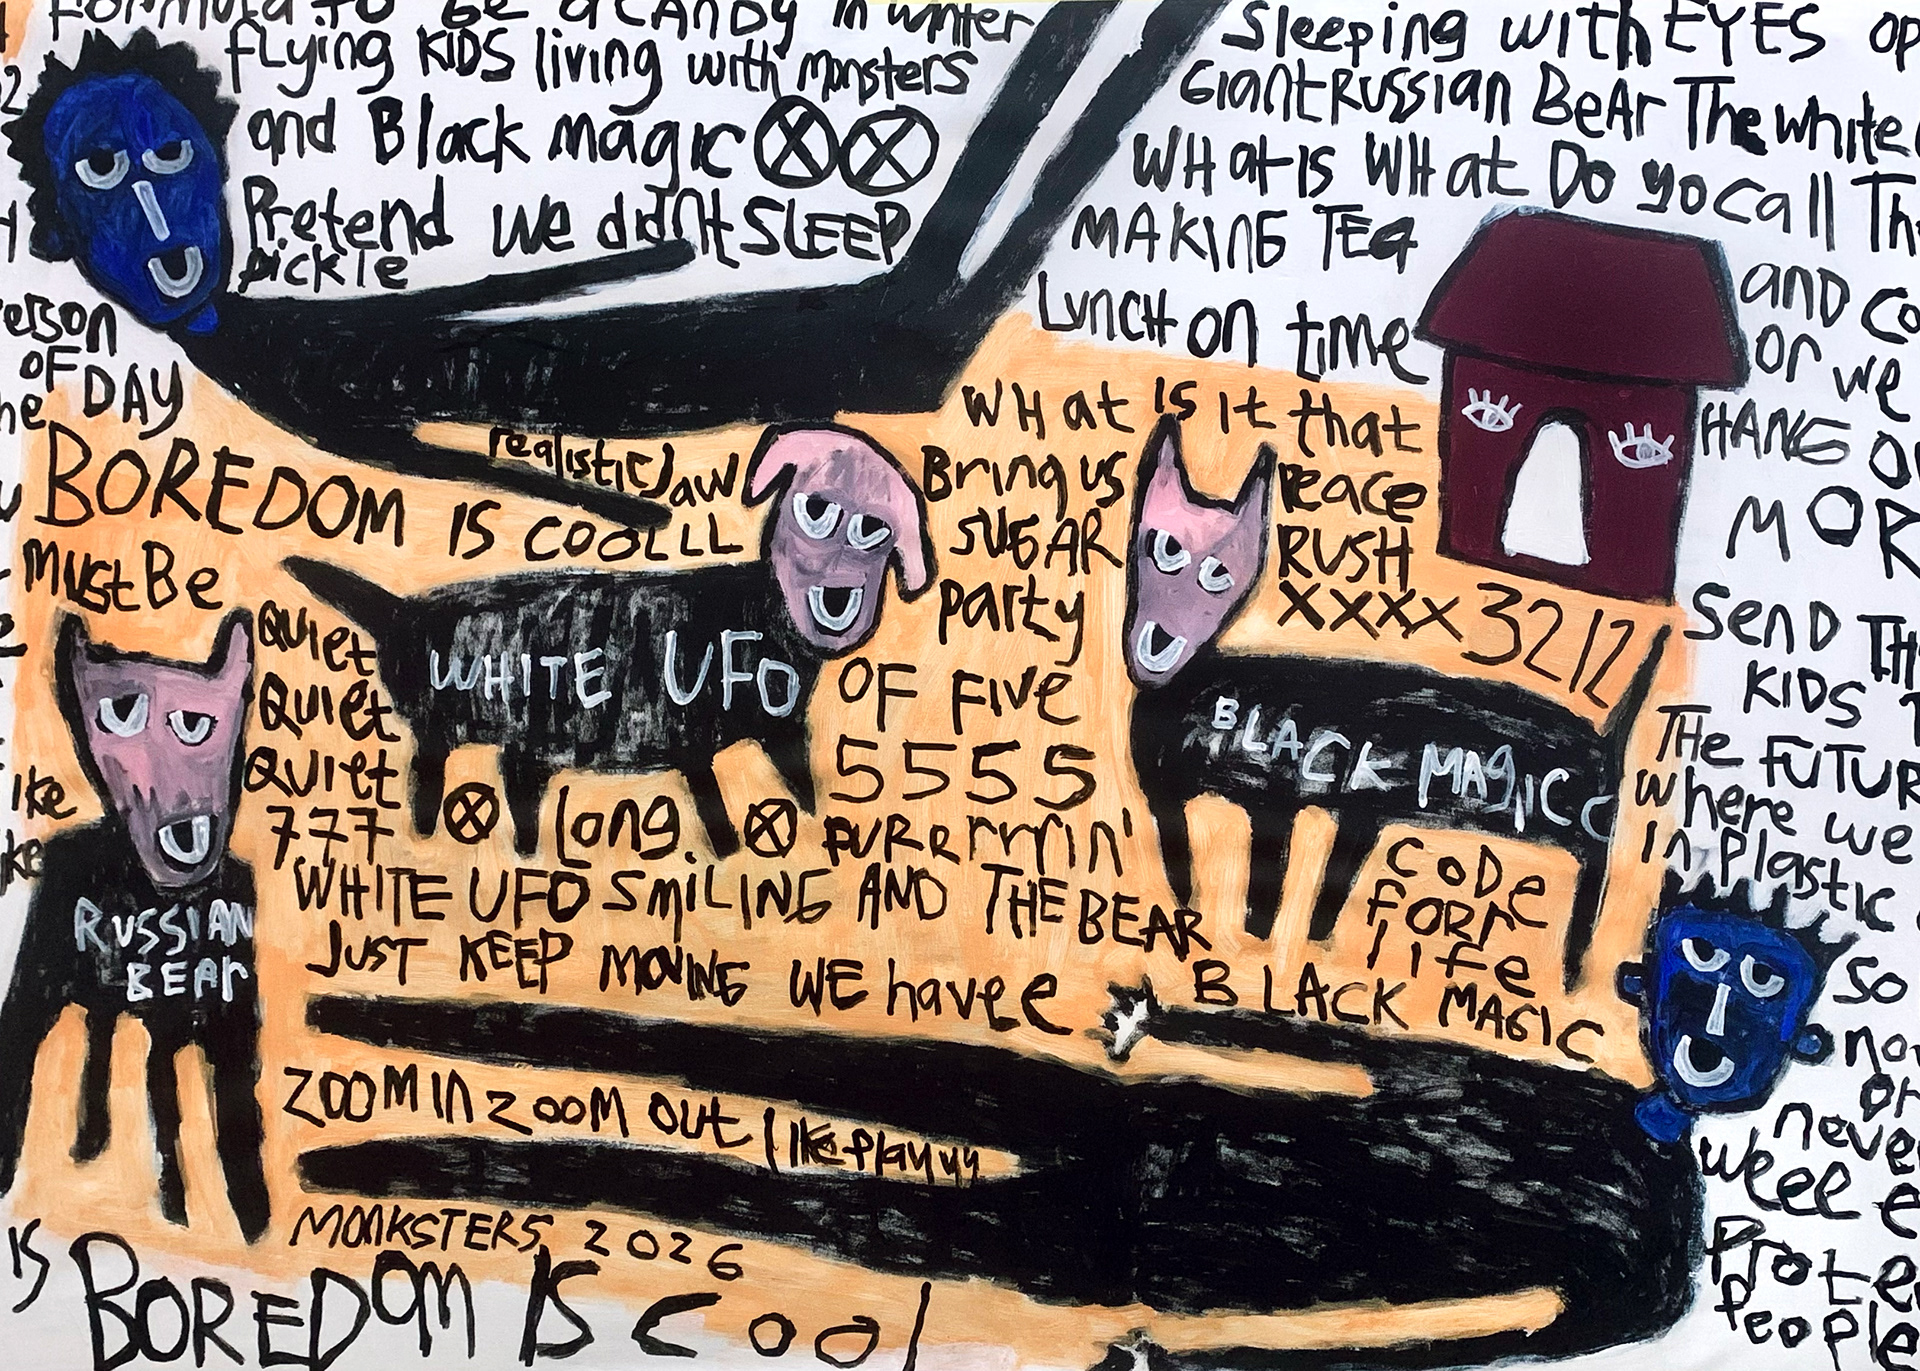 Formula to be a CANDY in winter
flying KIDS living with monsters
and Black magic
Pretend we didn't SLEEP
pickle
erson
OF DAY
he
BOREDOM IS COOLLL
realistic Jaw
must Be
Quiet
Quiet
Quiet
777
ike
ike
RUSSIAN
BEAr
WHITE UFO
Long.
Sleeping with EYES op
Giant Russian BeAr The white
WHat is WHat Do yo call Th
MAKING TEa
LUNCH on time
and co
or we
HANG O
MOR
WHat is it that
Bring us
SUGAR
party
OF FIVE
5555
PURerrrrin'
Peace
RUSH
XXXX 3212
BLACK MAgiC C
CoDe
FORre
life
BLACK MAGIC
WHITE UFO SmiLING AND THE BEAR
JUST KEEP MOVING WE havee
ZOOM In ZOOM out like playyy
MONKSTERS 2026
IS
BOREDOM IS cool
SenD TH
KIDS T
THe FUTUR
where we
in plastic
so
no
or
never
weee e
Prote
People